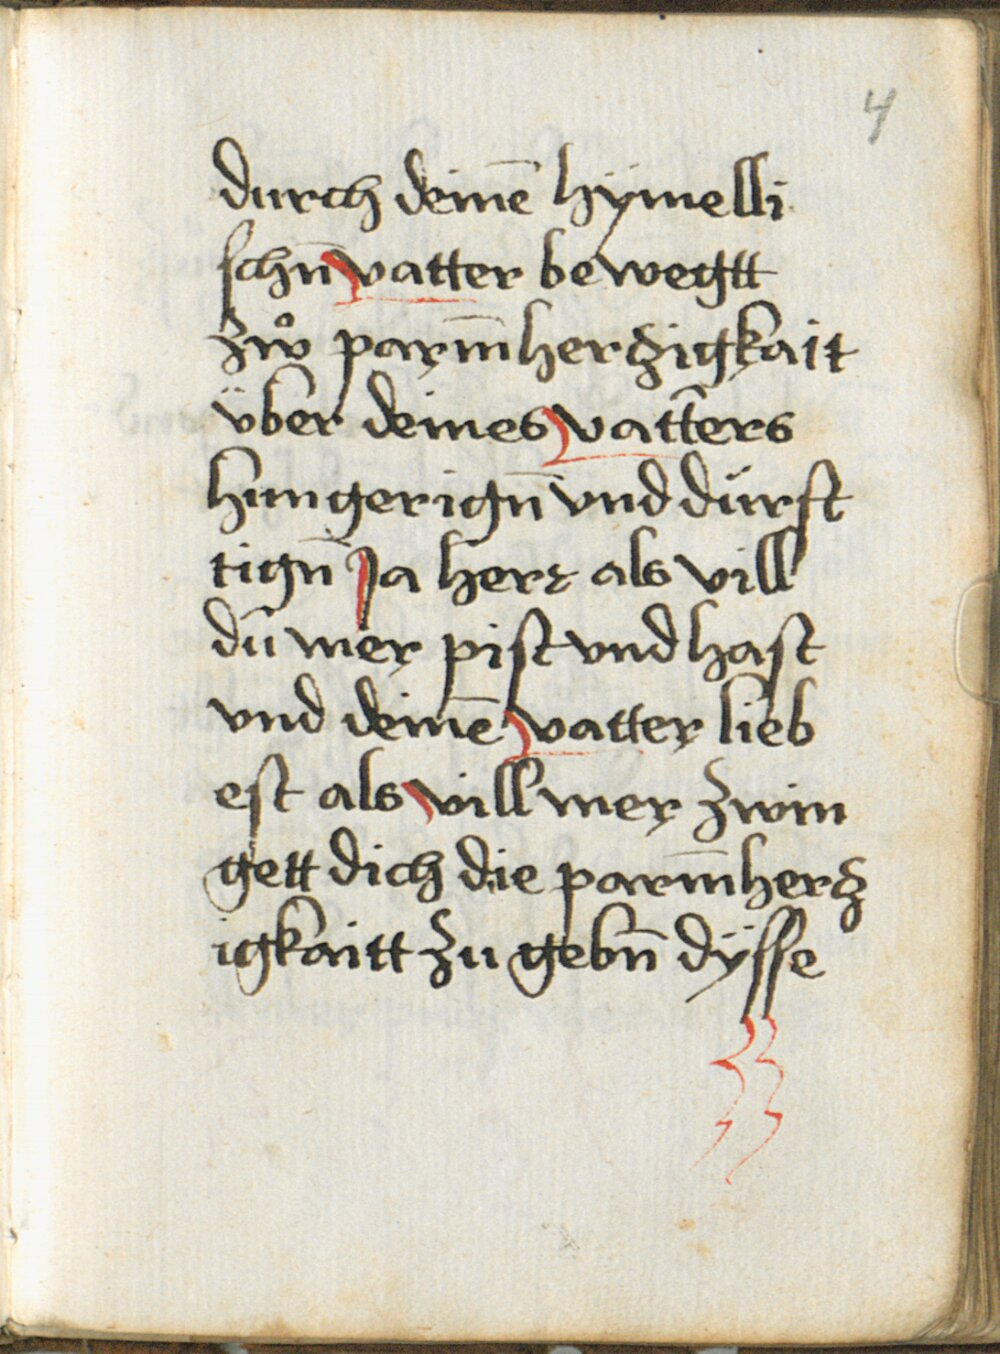 4
durch deinē hÿmelli
schn̄ vatter bewegtt
zwͦ parm̄herzigkait
v̈ber deines vatters
hungerign̄ vnd dürst
tign̄ Ja herr als vill
dū mer pist vnd hast
vnd deinē vatter lieb
est als vill mer zwin
gett dich die parm̄herz
igkaitt zu gebn̄ dÿsse